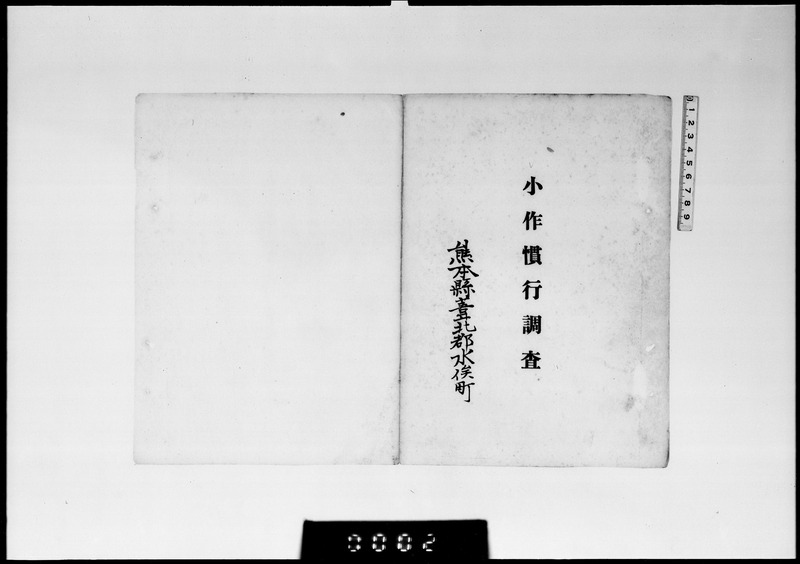 小作慣行調査
熊本縣葦北郡水俣町
0 1 2 3 4 5 6 7 8 9
0002